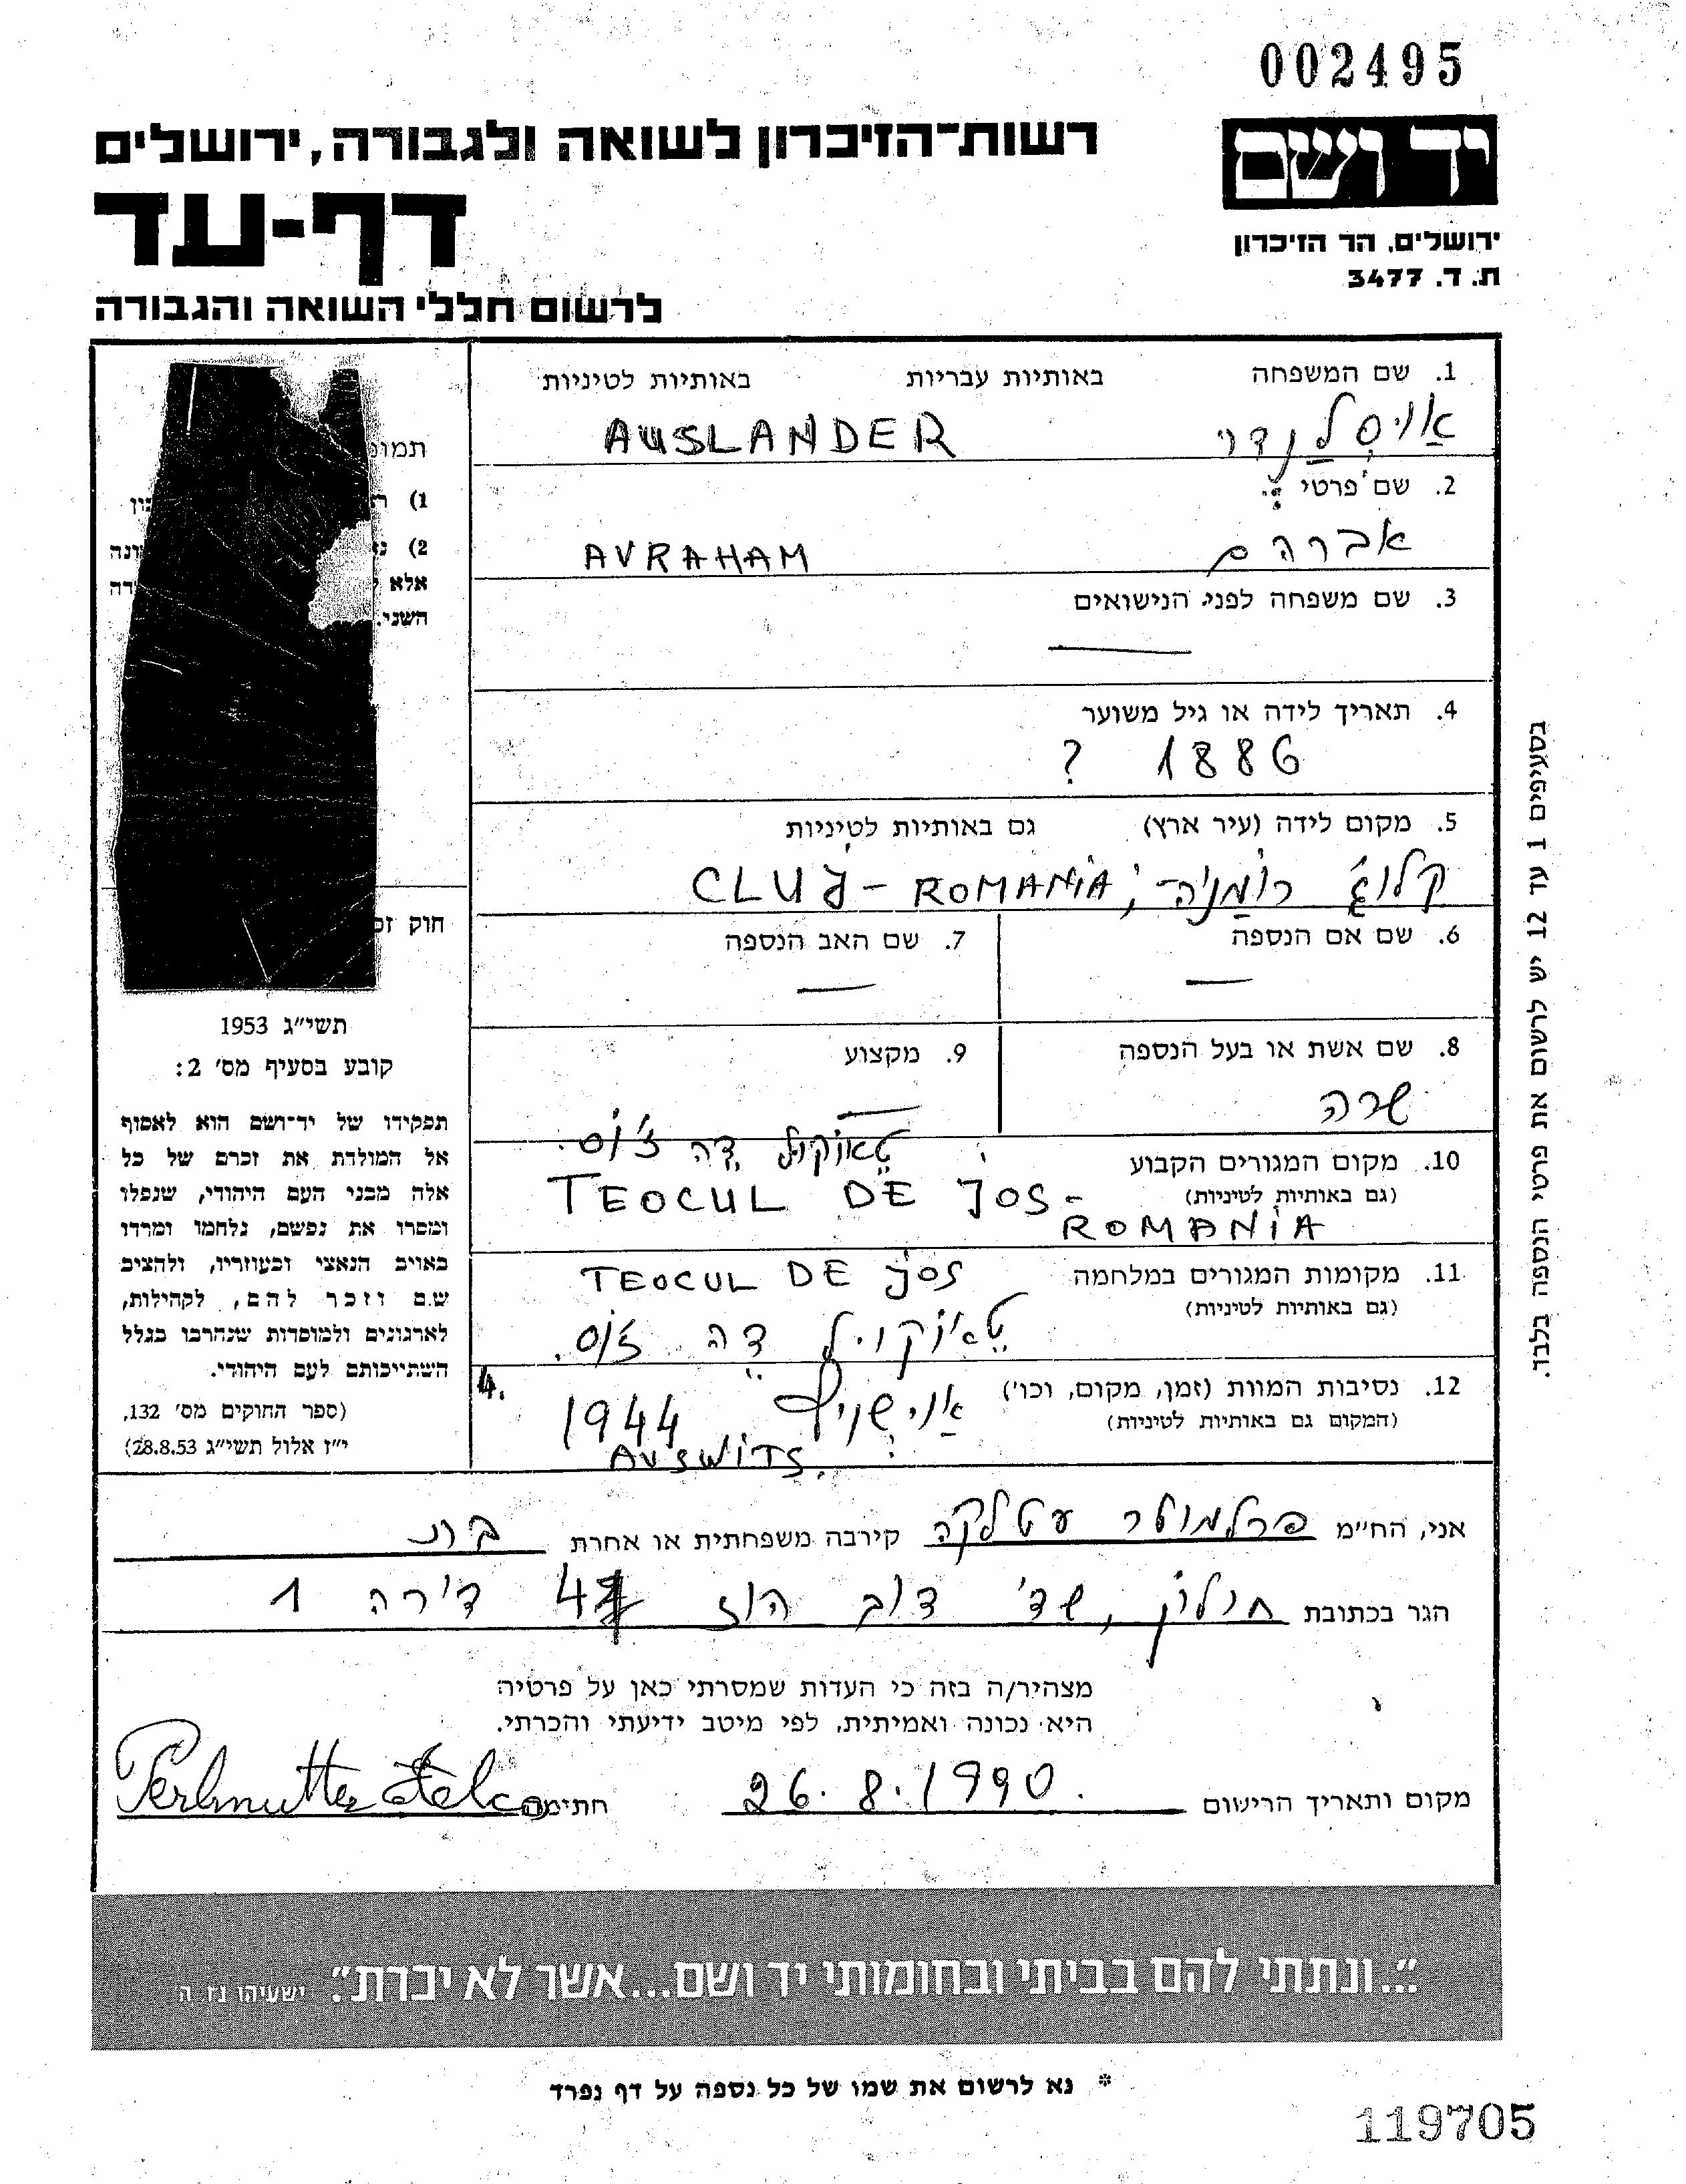 002495
יד ושם
רשות־הזיכרון לשואה ולגבורה, ירושלים
דף-עד
ירושלים, הר הזיכרון
ת. ד. 3477
לרשום חללי השואה והגבורה
1. שם המשפחה באותיות עבריות באותיות לטיניות
AUSLANDER
2. שם פרטי
אברהם AVRAHAM
3. שם משפחה לפני הנישואים
4. תאריך לידה או גיל משוער
1886 ?
5. מקום לידה (עיר ארץ) גם באותיות לטיניות
קלוג' רומניה - ; CLUJ - ROMANIA
6. שם אם הנספה 7. שם האב הנספה
8. שם אשת או בעל הנספה 9. מקצוע
שרה
טאוקול דה ז'וס.
10. מקום המגורים הקבוע
(גם באותיות לטיניות) TEOCUL DE JOS -
ROMANIA
11. מקומות המגורים במלחמה TEOCUL DE JOS
(גם באותיות לטיניות)
דה ז'וס.
12. נסיבות המוות (זמן, מקום, וכו') 1944 4.
(המקום גם באותיות לטיניות)
AUSWITS.
תמונ
1)
2)
אלא
השני.
חוק זכ
תשי״ג 1953
קובע בסעיף מס׳ 2:
תפקידו של יד־ושם הוא לאסוף
אל המולדת את זכרם של כל
אלה מבני העם היהודי, שנפלו
ומסרו את נפשם, נלחמו ומרדו
באויב הנאצי ובעוזריו, ולהציב
שם וזכר להם, לקהילות,
לארגונים ולמוסדות שנחרבו בגלל
השתייכותם לעם היהודי.
(ספר החוקים מס׳ 132,
י״ז אלול תשי״ג 28.8.53)
בסעיפים 1 עד 12 יש לרשום את פרטי הנספה בלבד.
אני, הח״מ פרלמוטר עטלקה קירבה משפחתית או אחרת בת
הגר בכתובת חולון, שד' דוב הוז דירה 1
מצהיר/ה בזה כי העדות שמסרתי כאן על פרטיה
היא נכונה ואמיתית, לפי מיטב ידיעתי והכרתי.
מקום ותאריך הרישום 26.8.1990. חתימה Perlmutter Etelca
״...ונתתי להם בביתי ובחומותי יד ושם...אשר לא יכרת״. ישעיהו נו, ה
* נא לרשום את שמו של כל נספה על דף נפרד
119705